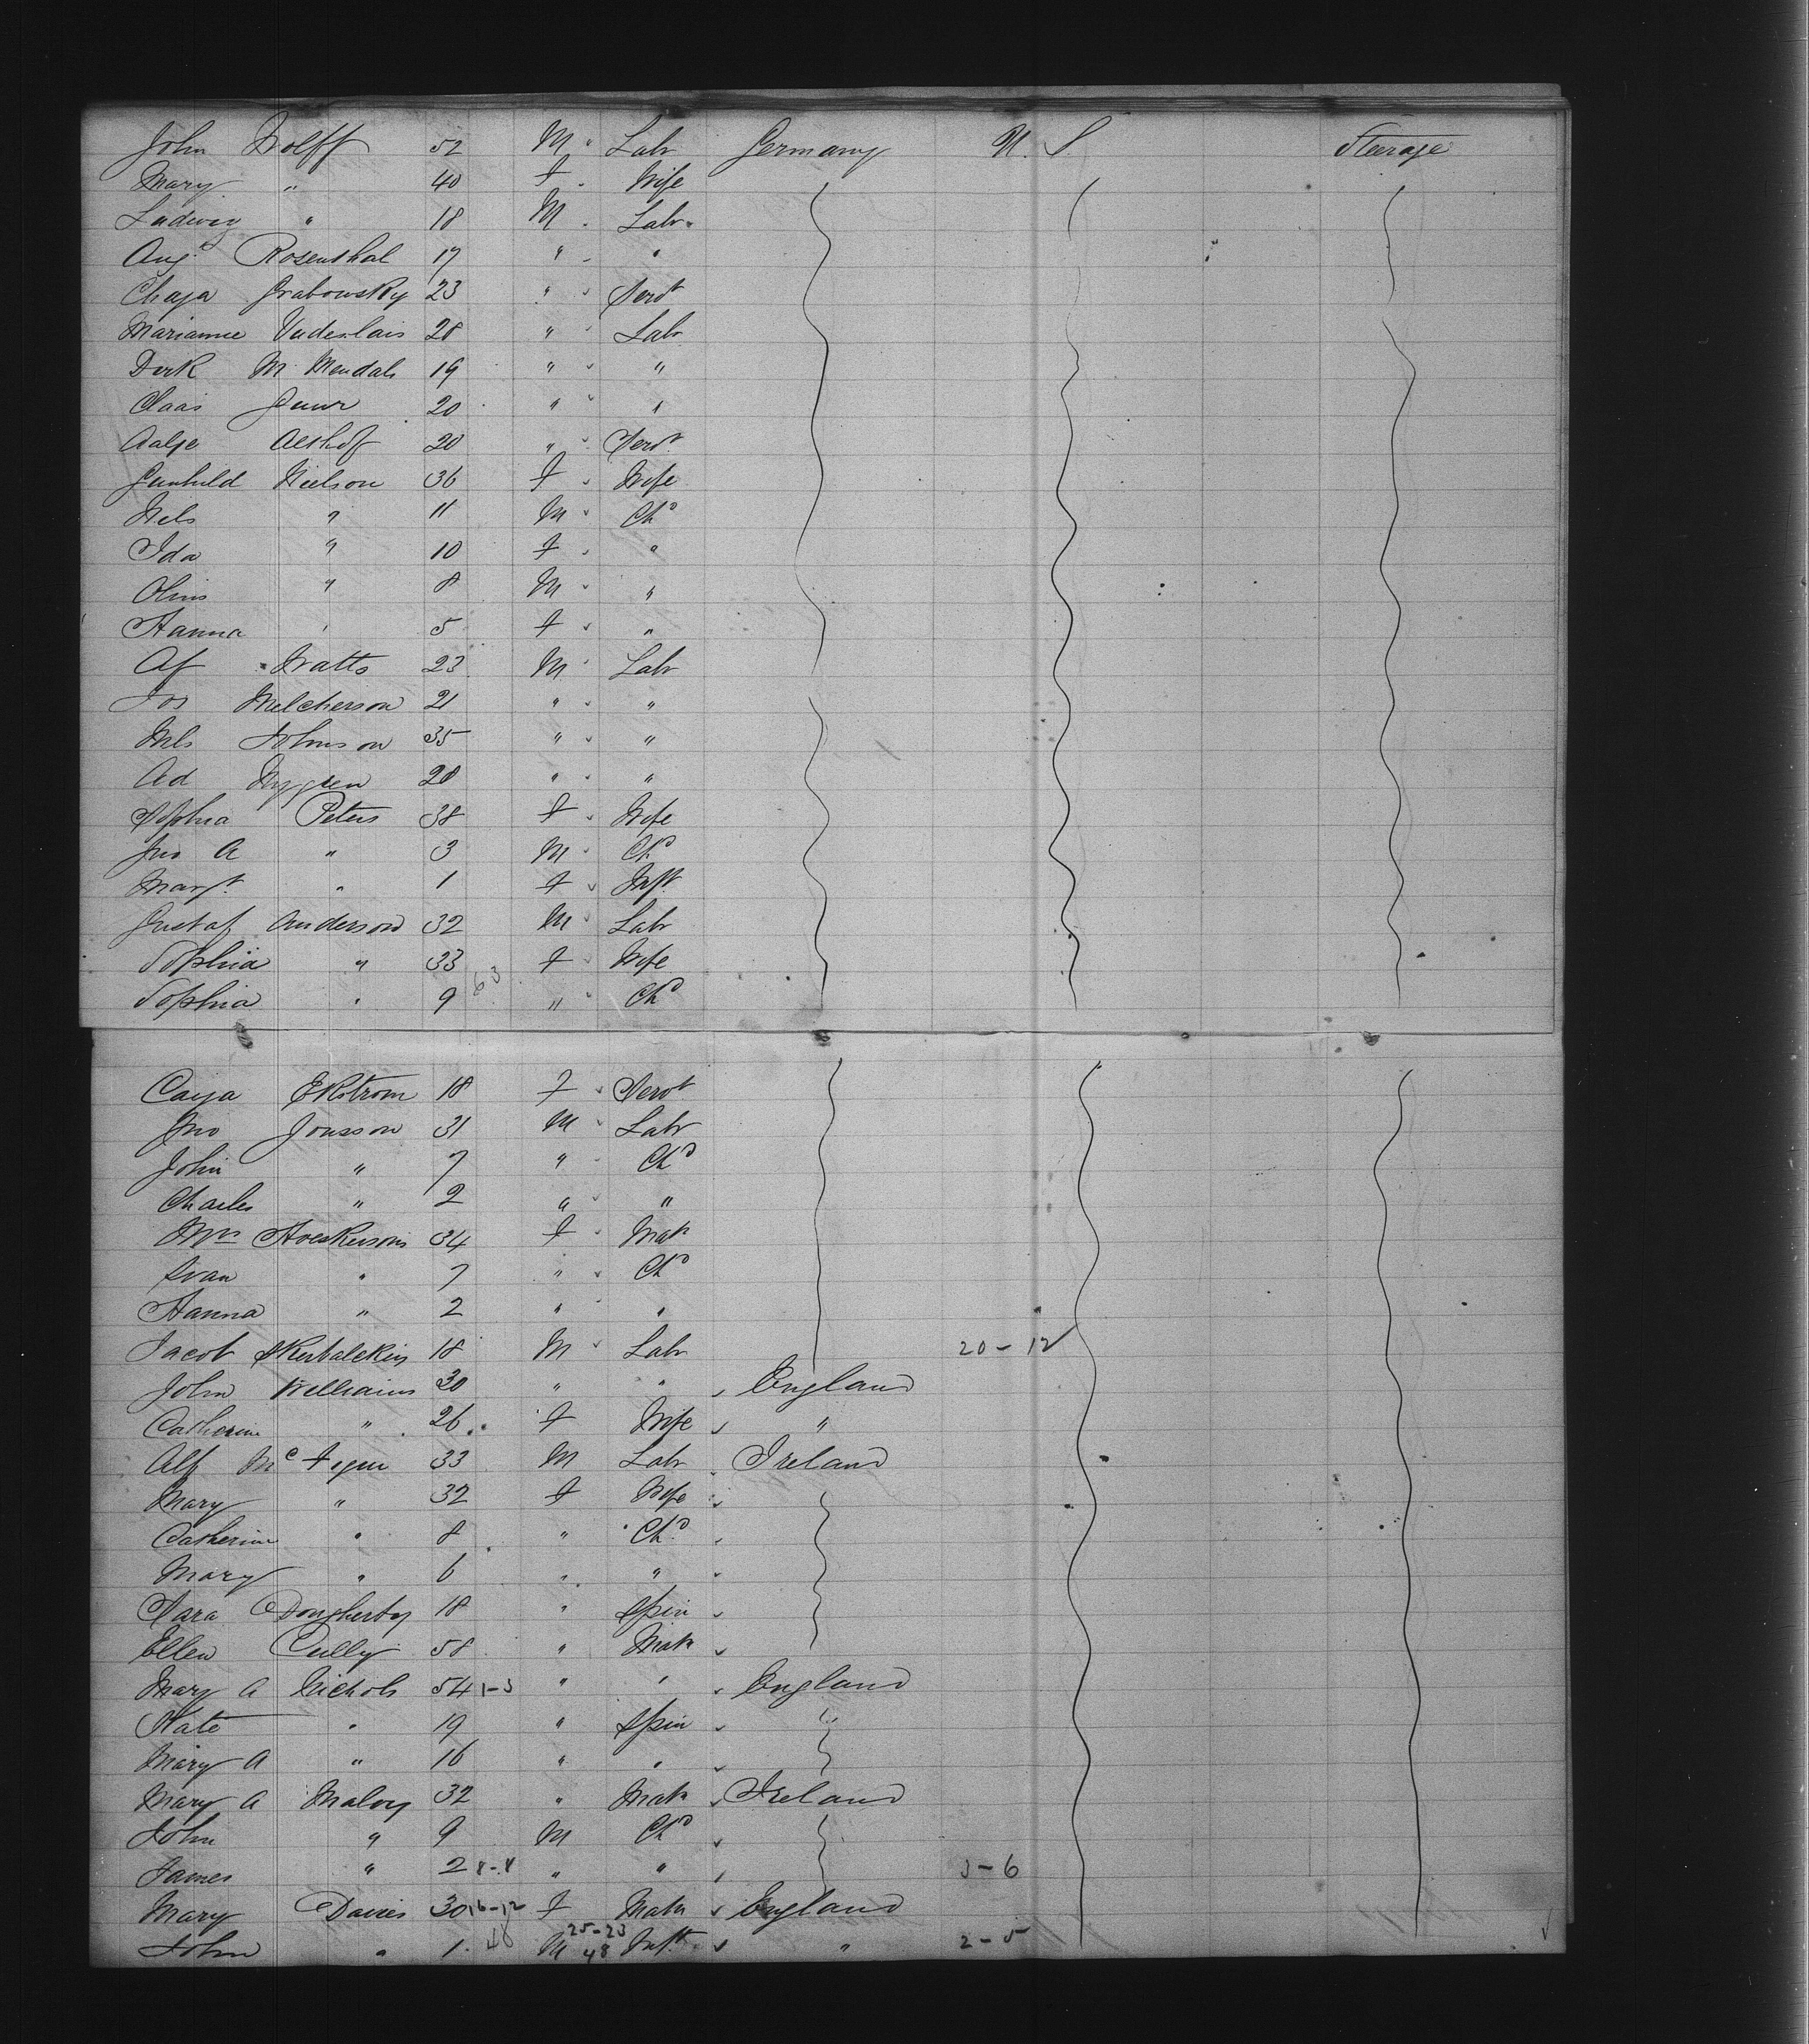 John Wolff 52 M Labr Germany U. S. Steerage
Mary " 40 F Wife
Ludwig " 18 M Labr
Augt Rosenthal 17 " "
Chaja Grabowsky 23 " Servt
Marianne 28 " Labr
Dirk M Mendals 19 " "
Claas 20 " "
Aalje 20 " Servt
Gunhild Nielson 36 F Wife
Nels " 11 M Chd
Ida " 10 F "
" 8 M "
Hanna " 5 F "
Af Watts 23 M Labr
Jos Melcherson 21 " "
Nels Johnson 35 " "
Ad Nygren 28 " "
Sophia Peters 38 F Wife
Jno A " 3 M Chd
Margt " 1 F Inft
Gustaf Anderson 32 M Labr
Sophia " 33 F Wife
Sophia " 9 63 " Chd
Caija Ekstrom 18 F Servt
Jno Jonsson 31 M Labr
John " 7 " Chd
Charles " 2 " "
Mrs 34 F Matn
Ivan " 7 " Chd
Hanna " 2 " "
Jacob 18 M Labr 20-12
John Williams 30 " " England
Catherine " 26 F Wife "
Alf 33 M Labr Ireland
Mary " 32 F Wife
Catherine " 8 " Chd
Mary " 6 " "
Sara Dougherty 18 " Spin
Ellen Cully 58 " Matn
Mary A Nichols 54 1-3 " " England
Kate " 19 " Spin
Mary A " 16 " "
Mary A Maloy 32 " Matn Ireland
John " 9 M Chd
James " 2 8-8 " " 3-6
Mary Davies 30 16-12 F Matn England
John " 1 48 M 25-23 48 Inft " 2-5